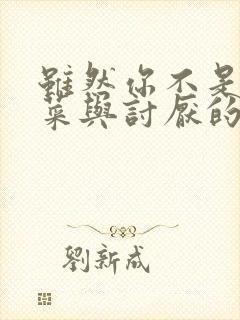 雖然你不是
菜與討厭的
劉新成